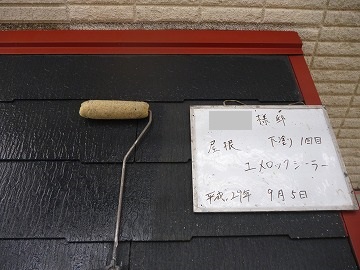 様邸
屋根 下塗り 1回目
エメロックシーラー
平成29年 9月5日